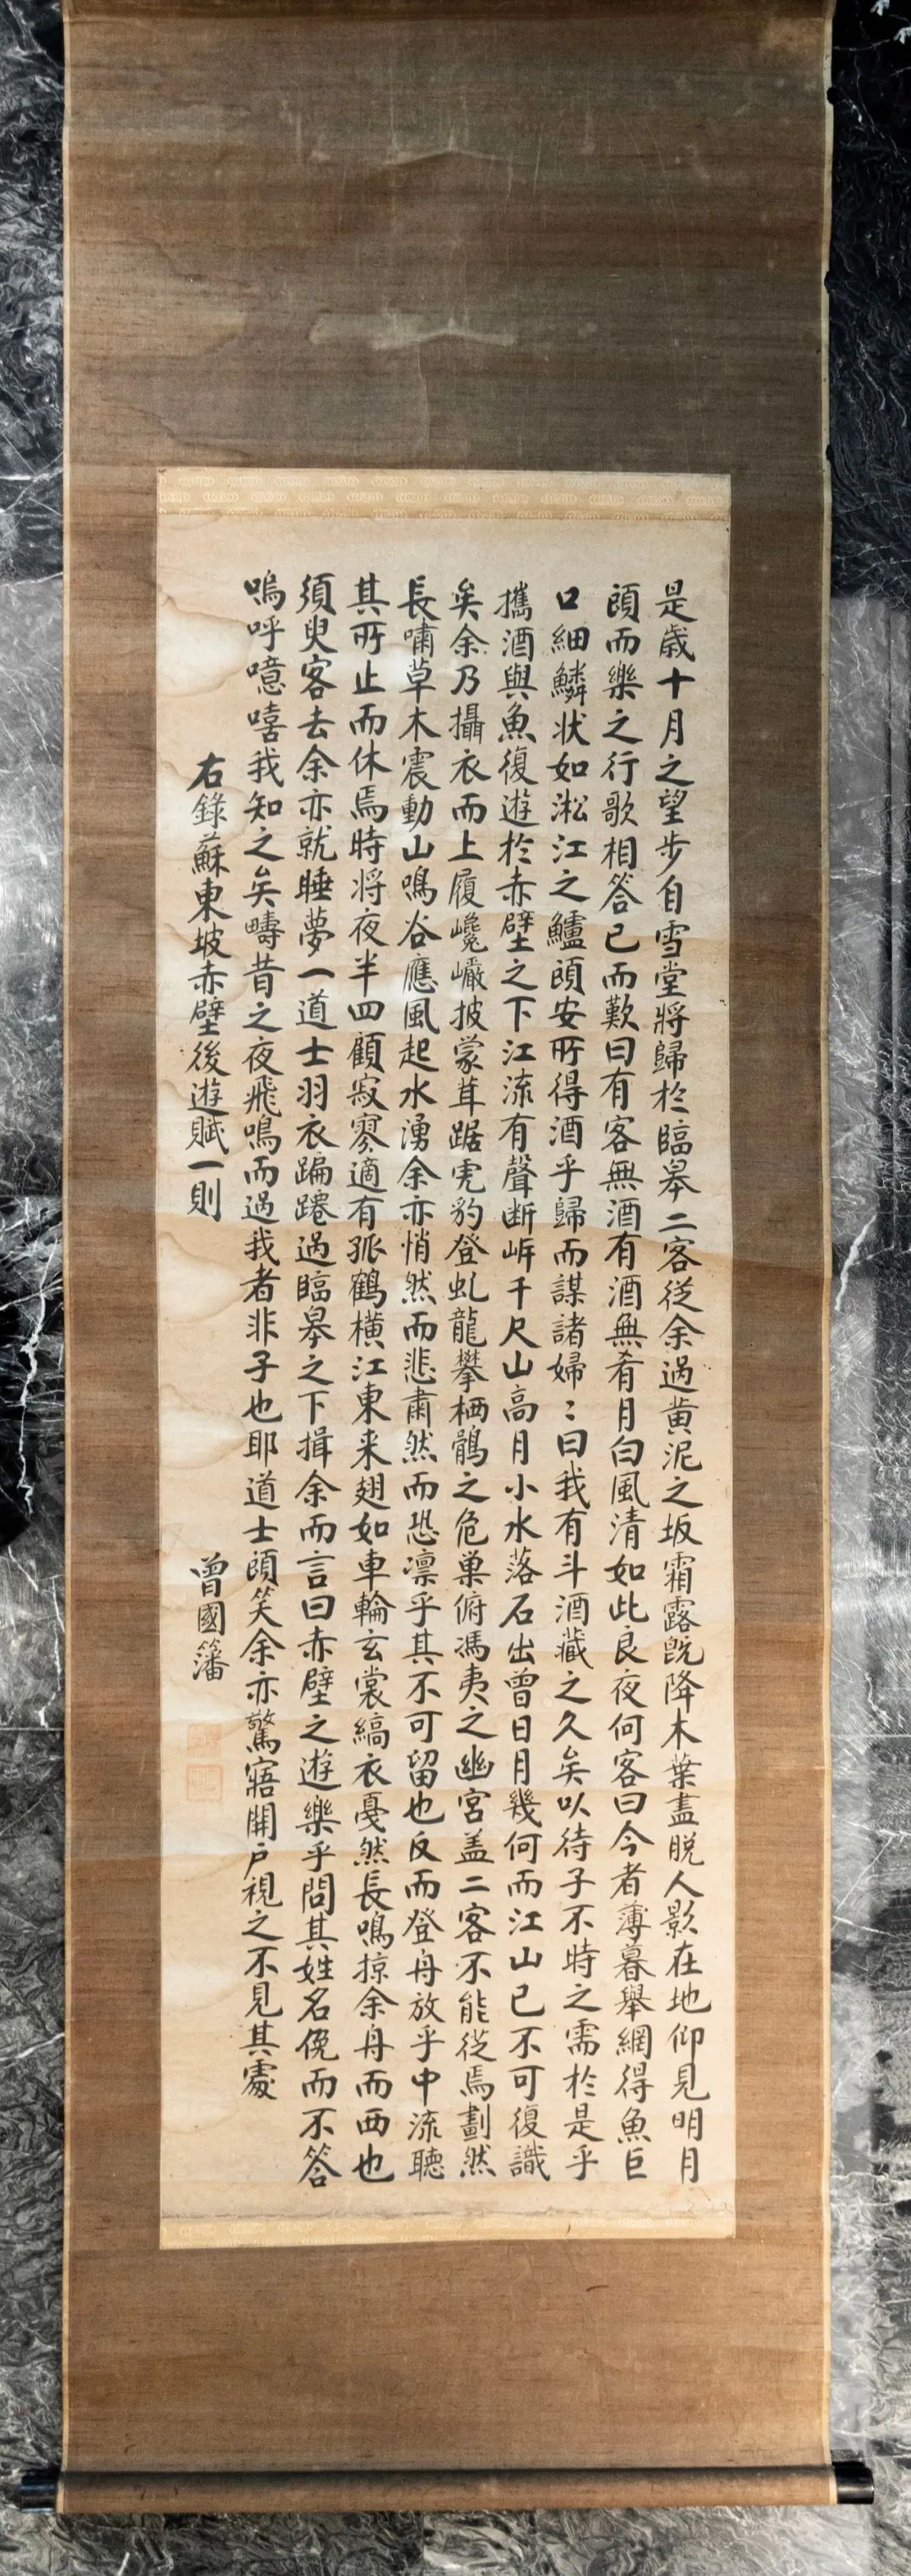 是歳十月之望步自雪堂將歸於臨皋二客從余過黄泥之坂霜露既降木葉盡脱人影在地仰見明月
頋而樂之行歌相答已而歎曰有客無酒有酒無肴月白風清如此良夜何客曰今者薄暮舉網得魚巨
口細鱗状如淞江之鱸頋安所得酒乎歸而謀諸婦〻曰我有斗酒藏之久矣以待子不時之需於是乎
攜酒與魚復遊於赤壁之下江流有聲断岸千尺山高月小水落石出曾日月幾何而江山已不可復識
矣余乃攝衣而上履巉巖披蒙茸踞虎豹登虬龍攀栖鶻之危巢俯馮夷之幽宮盖二客不能從焉劃然
長嘯草木震動山鳴谷應風起水湧余亦悄然而悲肅然而恐凛乎其不可留也反而登舟放乎中流聽
其所止而休焉時將夜半四顧寂寥適有孤鶴横江東来翅如車輪玄裳縞衣戞然長鳴掠余舟而西也
須臾客去余亦就睡夢一道士羽衣蹁躚過臨皋之下揖余而言曰赤壁之遊樂乎問其姓名俛而不答
嗚呼噫嘻我知之矣疇昔之夜飛鳴而過我者非子也耶道士頋笑余亦驚寤開户視之不見其處
右錄蘇東坡赤壁後遊賦一則
曾國籓